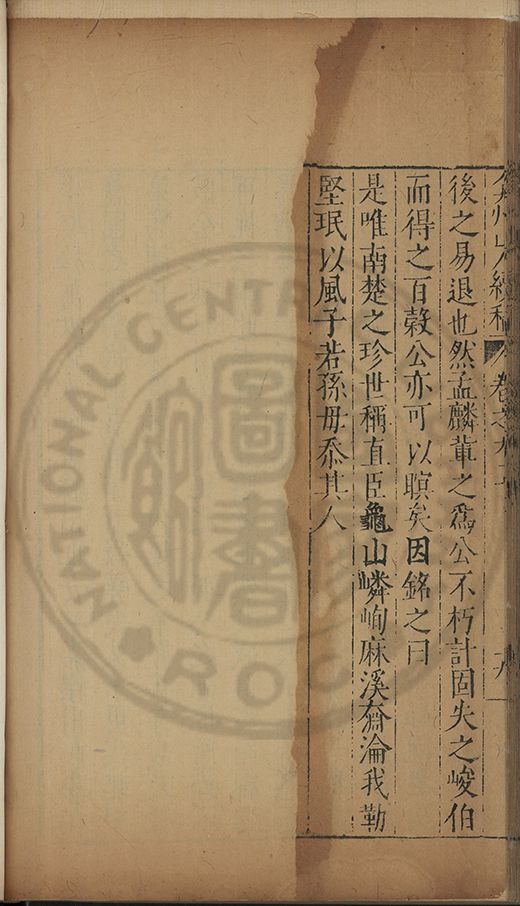 弇州山人續稿 卷之九十 十九
後之易退也然孟麟軰之爲公不朽計固失之峻伯
而得之百榖公亦可以瞑矣因銘之曰
是唯南楚之珍世稱直臣龜山嶙峋麻溪奫淪我勒
堅珉以風子若孫毋忝其人
NATIONAL CENTRAL
圖書
ROC